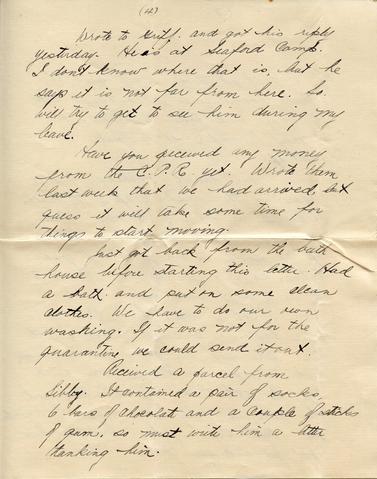 (4)
Wrote to Griff. and got his reply
yesterday. He is at Seaford Camp.
I don't know where that is, but he
says it is not far from here. So
will try to get to see him during my
leave.
Have you received any money
from the C.P.R. yet. Wrote them
last week that we had arrived, but
guess it will take some time for
things to start moving.
Just got back from the bath
house before starting this letter. Had
a bath and put on some clean
clothes. We have to do our own
washing. If it was not for the
quarantine we could send it out.
Received a parcel from
Sibley. It contained a pair of socks,
6 bars of chocolate and a couple of sticks
of gum, so must write him a letter
thanking him.